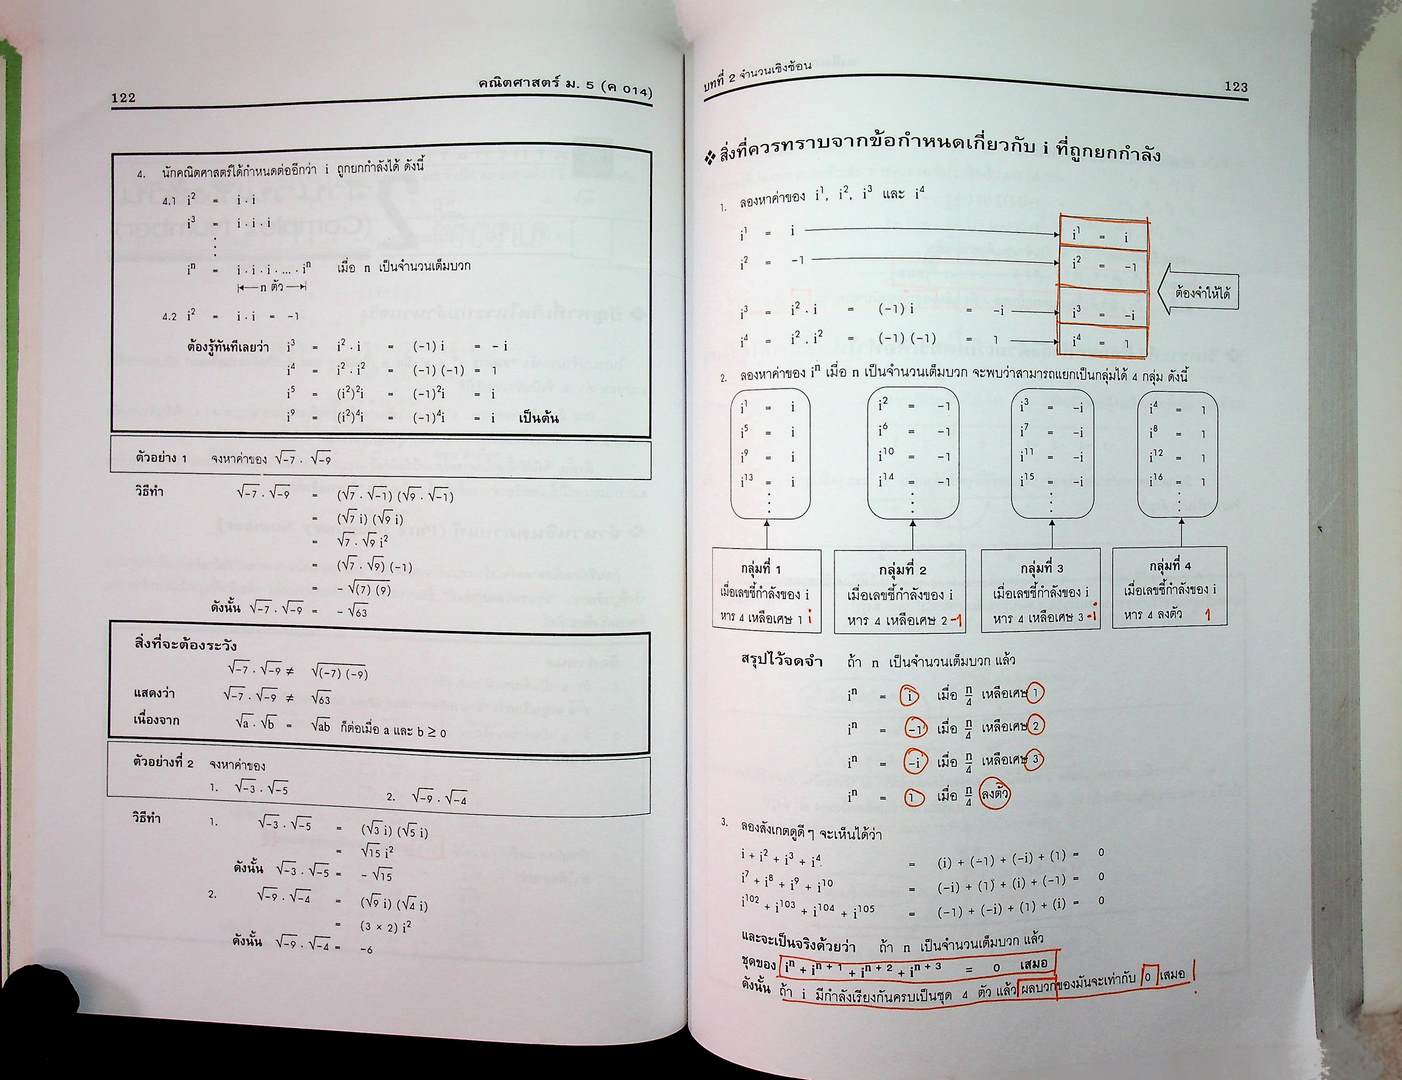 122
คณิตศาสตร์ ม. 5 (ค 014)
4. นักคณิตศาสตร์ได้กำหนดต่ออีกว่า i ถูกยกกำลังได้ ดังนี้
4.1 i² = i · i
i³ = i · i · i
⋮
iⁿ = i · i · i · ... · iⁿ เมื่อ n เป็นจำนวนเต็มบวก
|←— n ตัว —→|
4.2 i² = i · i = -1
ต้องรู้ทันทีเลยว่า i³ = i² · i = (-1) i = - i
i⁴ = i² · i² = (-1) (-1) = 1
i⁵ = (i²)²i = (-1)²i = i
i⁹ = (i²)⁴i = (-1)⁴i = i เป็นต้น
ตัวอย่าง 1 จงหาค่าของ √-7 · √-9
วิธีทำ √-7 · √-9 = (√7 · √-1) (√9 · √-1)
= (√7 i) (√9 i)
= √7 · √9 i²
= (√7 · √9) (-1)
= - √(7) (9)
ดังนั้น √-7 · √-9 = - √63
สิ่งที่จะต้องระวัง
√-7 · √-9 ≠ √(-7) (-9)
แสดงว่า √-7 · √-9 ≠ √63
เนื่องจาก √a · √b = √ab ก็ต่อเมื่อ a และ b ≥ 0
ตัวอย่างที่ 2 จงหาค่าของ
1. √-3 · √-5 2. √-9 · √-4
วิธีทำ 1. √-3 · √-5 = (√3 i) (√5 i)
= √15 i²
ดังนั้น √-3 · √-5 = - √15
2. √-9 · √-4 = (√9 i) (√4 i)
= (3 × 2) i²
ดังนั้น √-9 · √-4 = -6
บทที่ 2 จำนวนเชิงซ้อน
123
❖ สิ่งที่ควรทราบจากข้อกำหนดเกี่ยวกับ i ที่ถูกยกกำลัง
1. ลองหาค่าของ i¹, i², i³ และ i⁴
i¹ = i i¹ = i
i² = -1 i² = -1
ต้องจำให้ได้
i³ = i² · i = (-1) i = -i i³ = -i
i⁴ = i² · i² = (-1) (-1) = 1 i⁴ = 1
2. ลองหาค่าของ iⁿ เมื่อ n เป็นจำนวนเต็มบวก จะพบว่าสามารถแยกเป็นกลุ่มได้ 4 กลุ่ม ดังนี้
i¹ = i i² = -1 i³ = -i i⁴ = 1
i⁵ = i i⁶ = -1 i⁷ = -i i⁸ = 1
i⁹ = i i¹⁰ = -1 i¹¹ = -i i¹² = 1
i¹³ = i i¹⁴ = -1 i¹⁵ = -i i¹⁶ = 1
⋮ ⋮ ⋮ ⋮
กลุ่มที่ 1 กลุ่มที่ 2 กลุ่มที่ 3 กลุ่มที่ 4
เมื่อเลขชี้กำลังของ i เมื่อเลขชี้กำลังของ i เมื่อเลขชี้กำลังของ i เมื่อเลขชี้กำลังของ i
หาร 4 เหลือเศษ 1 i หาร 4 เหลือเศษ 2 -1 หาร 4 เหลือเศษ 3 -i หาร 4 ลงตัว 1
สรุปไว้จดจำ ถ้า n เป็นจำนวนเต็มบวก แล้ว
iⁿ = i เมื่อ n/4 เหลือเศษ 1
iⁿ = -1 เมื่อ n/4 เหลือเศษ 2
iⁿ = -i เมื่อ n/4 เหลือเศษ 3
iⁿ = 1 เมื่อ n/4 ลงตัว
3. ลองสังเกตดูดี ๆ จะเห็นได้ว่า
i + i² + i³ + i⁴ = (i) + (-1) + (-i) + (1) = 0
i⁷ + i⁸ + i⁹ + i¹⁰ = (-i) + (1) + (i) + (-1) = 0
i¹⁰² + i¹⁰³ + i¹⁰⁴ + i¹⁰⁵ = (-1) + (-i) + (1) + (i) = 0
และจะเป็นจริงด้วยว่า ถ้า n เป็นจำนวนเต็มบวก แล้ว
ชุดของ iⁿ + iⁿ⁺¹ + iⁿ⁺² + iⁿ⁺³ = 0 เสมอ
ดังนั้น ถ้า i มีกำลังเรียงกันครบเป็นชุด 4 ตัว แล้ว ผลบวกของมันจะเท่ากับ 0 เสมอ !